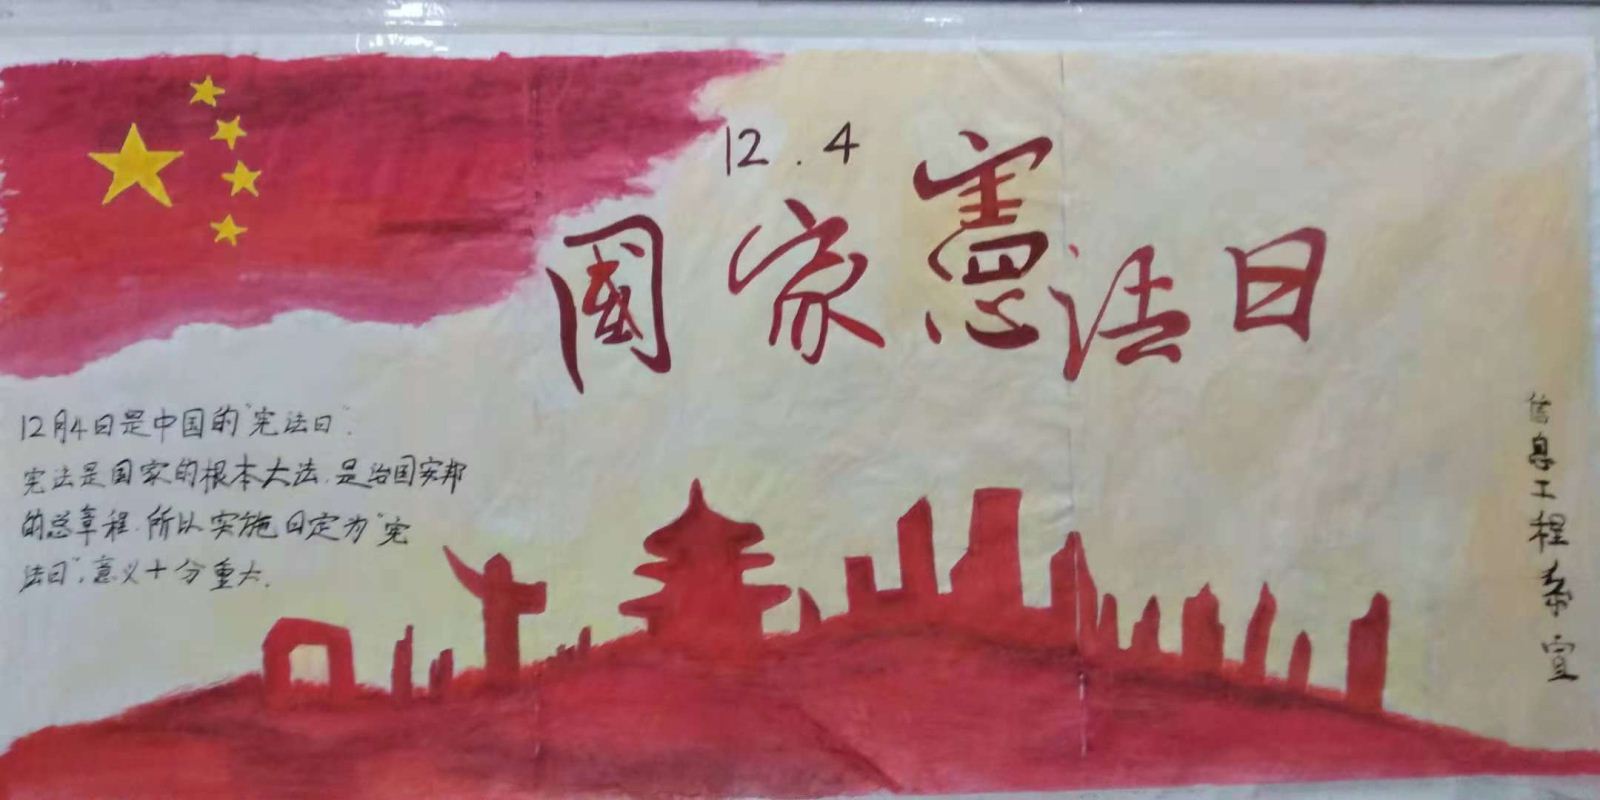 12.4
國家憲法日
12月4日是中国的"宪法日".
宪法是国家的根本大法.是治国安邦
的总章程.所以实施日定为"宪
法日",意义十分重大.
信息工程系宣